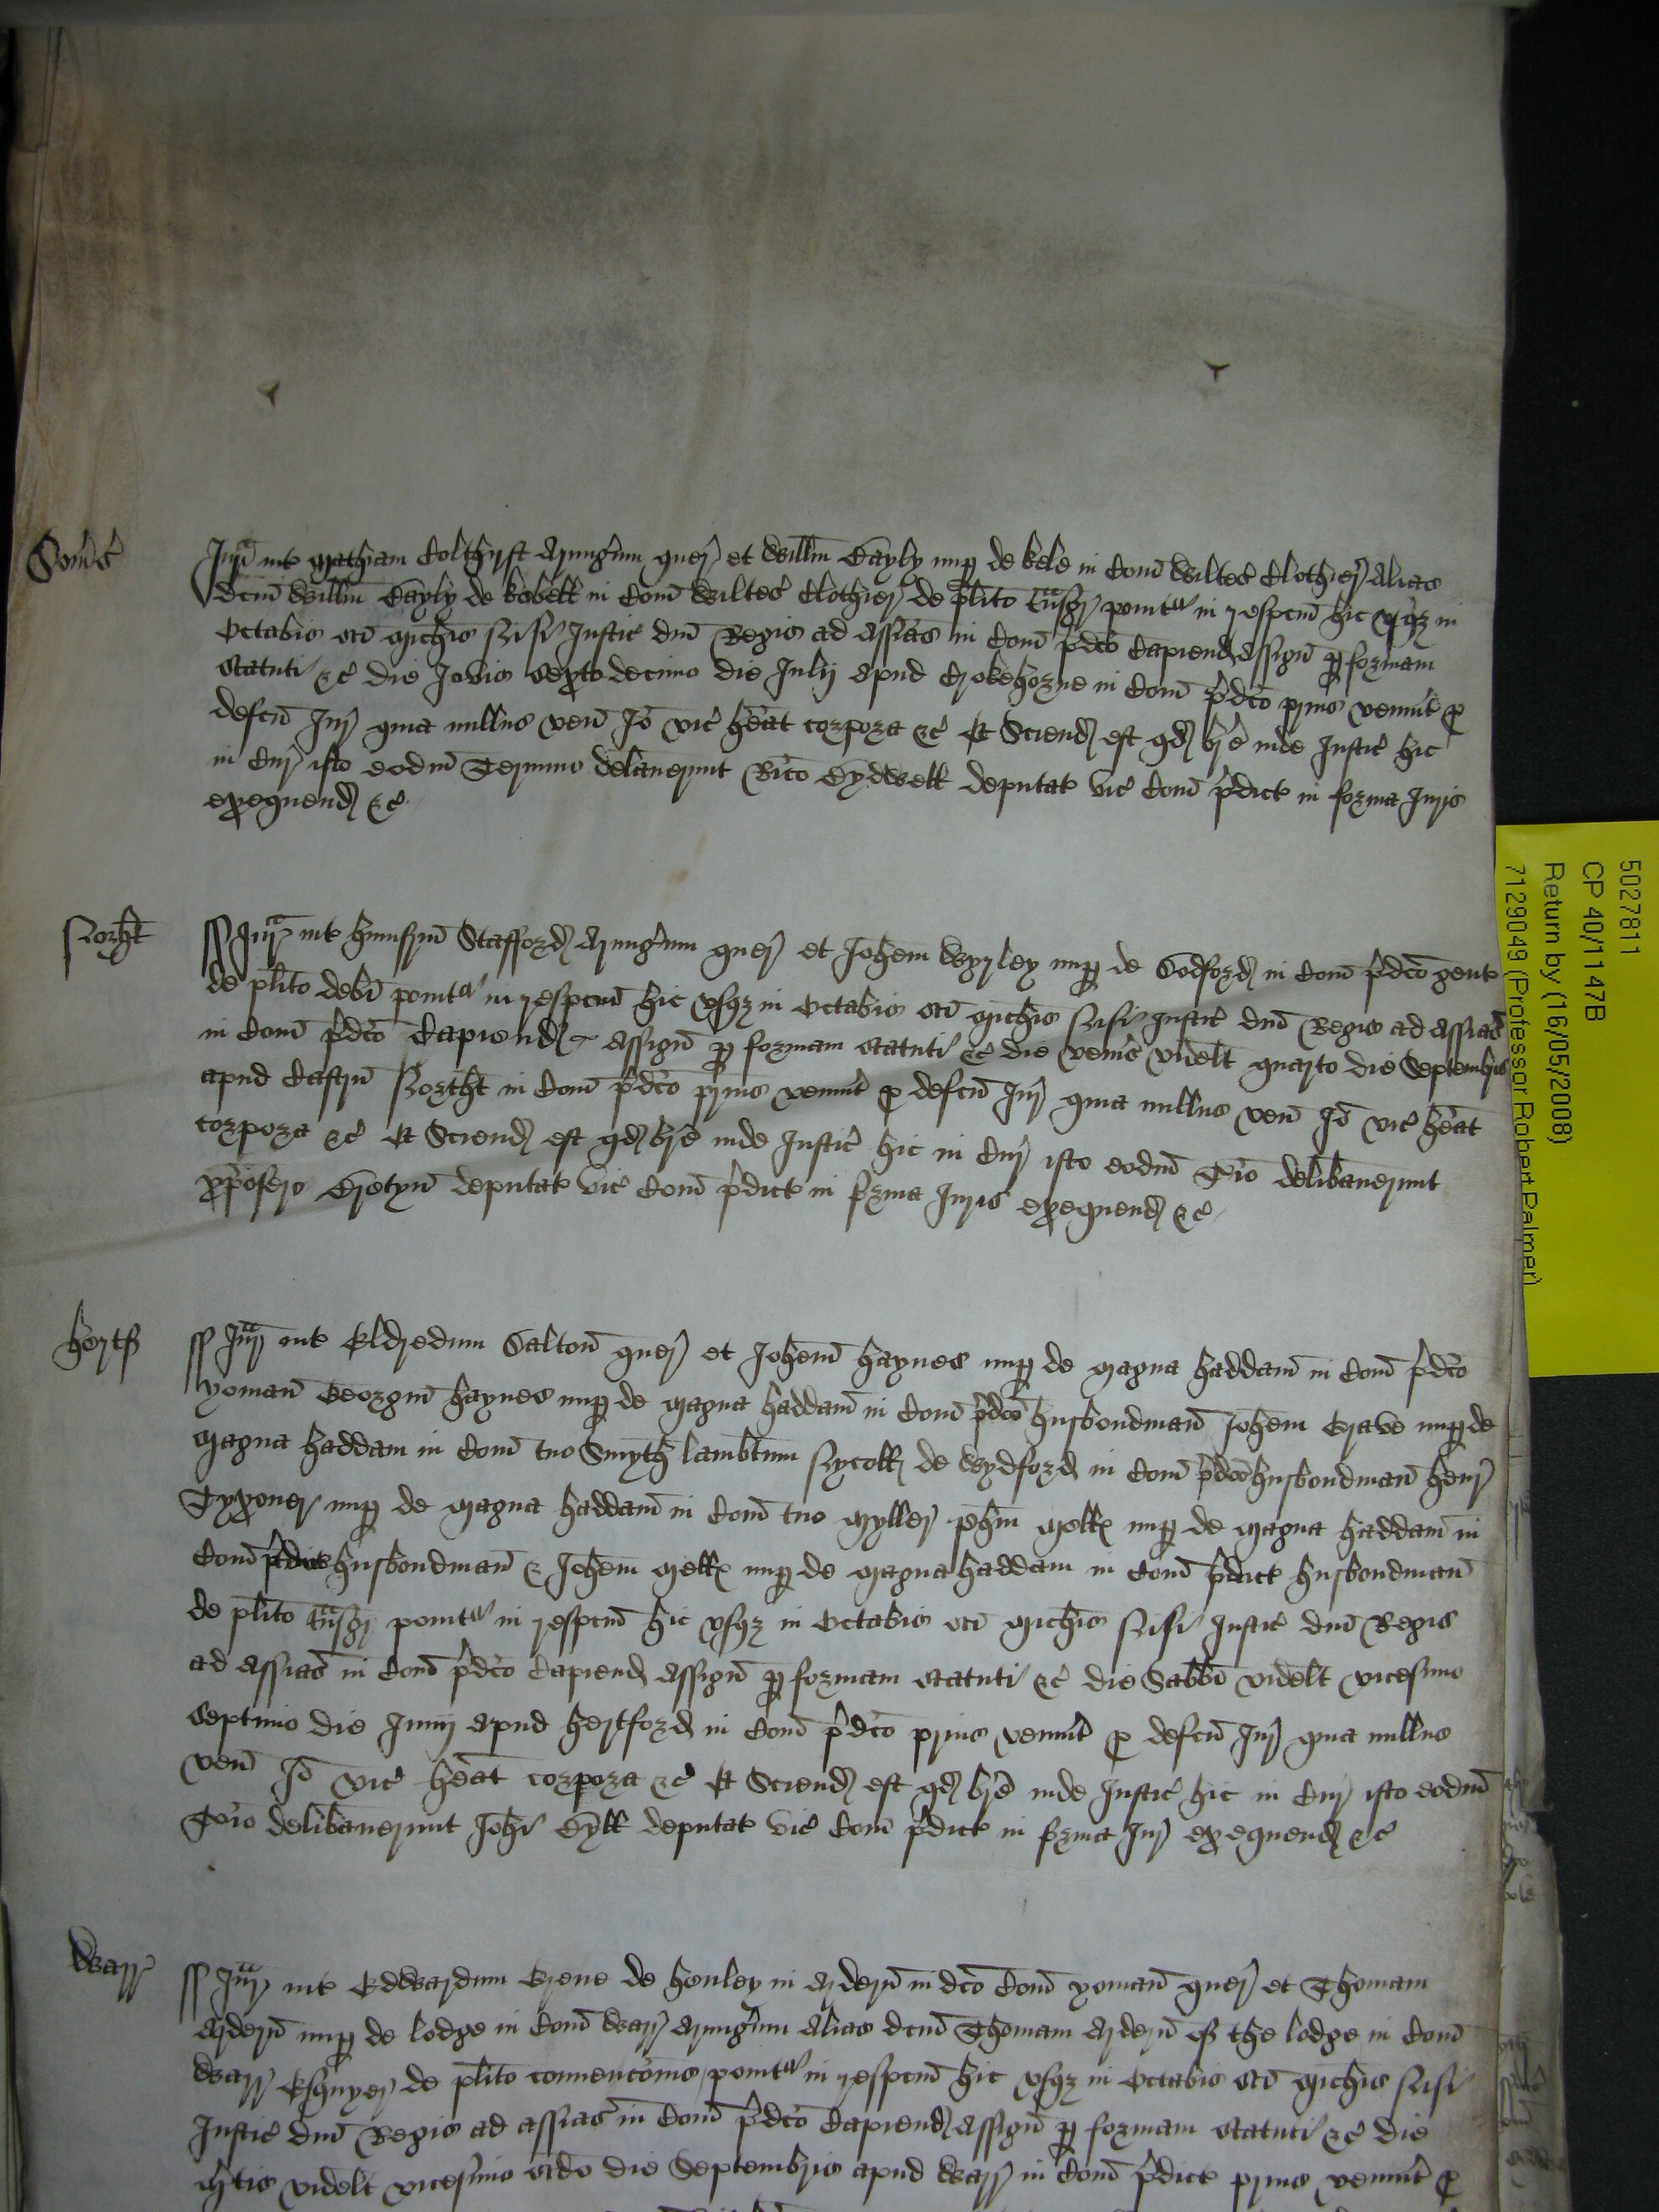 Som's
Jur̃ int Mathiam Colthyrst Armig'um quer̃ et Will̃m Bayly nup de Kele in Com̃ Wiltes' Clothier̃ Alias
dc̃m Will̃m Bayly de Kevell in Com̃ Wiltes' Clothier̃ de pl̃ito tñsgr̃ ponit' in respc̃m hic vsqz in
Octabis sc̃i Mich̃is Nisi Justic' dñi Regis ad assias in Com̃ p̃dc̃o Capiend assign̄ p formam
statuti &c̃ die Jovis sexto decimo die Julij apud Crokehorne in Com̃ p̃dc̃o prius ven'int p
defc̃u Jur̃ quia nullus ven̄ Jo vic' h̃eat corpora &c̃ Et Sciend est qd br̃e inde Justic' hic
in Cur̃ isto eodm̃ Termino delib̃auerunt Ric̃o Bydwell deputat vic' Com̃ p̃dict in forma Juris
exequend &c̃
North̃t
ss Jur̃ int Humfrm̃ Stafford Armig'um quer̃ et Joh̃em Wyrley nup de Dodford in Com̃ p̃dc̃o gent
de pl̃ito debĩ ponit' in respc̃m hic vsqz in Octabis sc̃i Mich̃is Nisi Justic' dñi Regis ad assias
in Com̃ p̃dc̃o Capiend ~ assign̄ p formam statuti &c̃ die ven'is videl̃t quarto die Septembris
apud Castrũ North̃t in Com̃ p̃dc̃o prius ven'int p defc̃u Jur̃ quia nullus ven̄ Jo vic' h̃eat
corpora &c̃ Et Sciend est qd br̃e inde Justic' hic in Cur̃ isto eodm̃ T'io delib̃auerunt
Xp̃ofero Bretyn̄ deputat vic' Com̃ p̃dict in forma Juris exequend &c̃
Hertf
ss Jur̃ int Eldredum Salton̄ quer̃ et Joh̃em Haynes nup de Magna Haddam̃ in Com̃ p̃dc̃o
yoman̄ Georgiũ Haynes nup de Magna Haddam̃ in Com̃ p̃dc̃o husbondman̄ Joh̃em Grave nup de
Magna Haddam in Com̃ tuo Smyth lamb'tum Nycoll de Wydford in Com̃ p̃dc̃o husbondman̄ Henr̃
Tyxoner nup de Magna Haddam̃ in Com̃ tuo Myller̃ ph̃m Mell nup de Magna Haddam̃ in
Com̃ p̃dict husbondman̄ & Joh̃em Mell nup de Magna Haddam in Com̃ p̃dict husbondman̄
de pl̃ito tñsgr̃ ponit' in respc̃m hic vsqz in Octabis sc̃i Mich̃is Nisi Justic' dñi Regis
ad assias in Com̃ p̃dc̃o Capiend assign̄ p formam statuti &c̃ die Sabb̃i videl̃t vicesimo
septimo die Junij apud Hertford in Com̃ p̃dc̃o prius ven'int p defc̃u Jur̃ quia nullus
ven̄ Jo vic' h̃eat corpora &c̃ Et Sciend est qd br̃e inde Justic' hic in Cur̃ isto eodm̃
T'io delib̃auerunt Joh̃i Byll deputat vic' Com̃ p̃dict in forma Jur̃ exequend &c̃
Warr̃
ss Jur̃ int Edwardum Grene de Henley in Ardern̄ in dc̃o Com̃ yoman̄ quer̃ et Thomam
Ardern̄ nup de lodge in Com̃ Warr̃ Armig'um Alias dc̃m Thomam Ardern̄ of the lodge in Com̃
Warr̃ Esquyer̃ de pl̃ito conuenc̃onis ponit' in respc̃m hic vsqz in Octabis sc̃i Mich̃is Nisi
Justic' dñi Regis ad assias in Com̃ p̃dc̃o Capiend assign̄ p formam statuti &c̃ die
M'tis videl̃t vicesimo sc̃do die Septembris apud Warr̃ in Com̃ p̃dict prius ven'int p
5027811
CP 40/1147B
Return by (16/05/2008)
7129049 (Professor Robert Palmer)